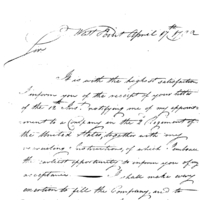 West Point April 17th 1802
Sir
It is with the highest satisfaction
I inform you of the receipt of your letter
of the 12 Inst. notifying me of my appoint
ment to a Company in the 2 Regiment of
the United States, together with my
recruiting Instructions, of which I embrace
the earliest opportunity to inform you of my
acceptance. I shall make every
exertion to fill the Company, and to